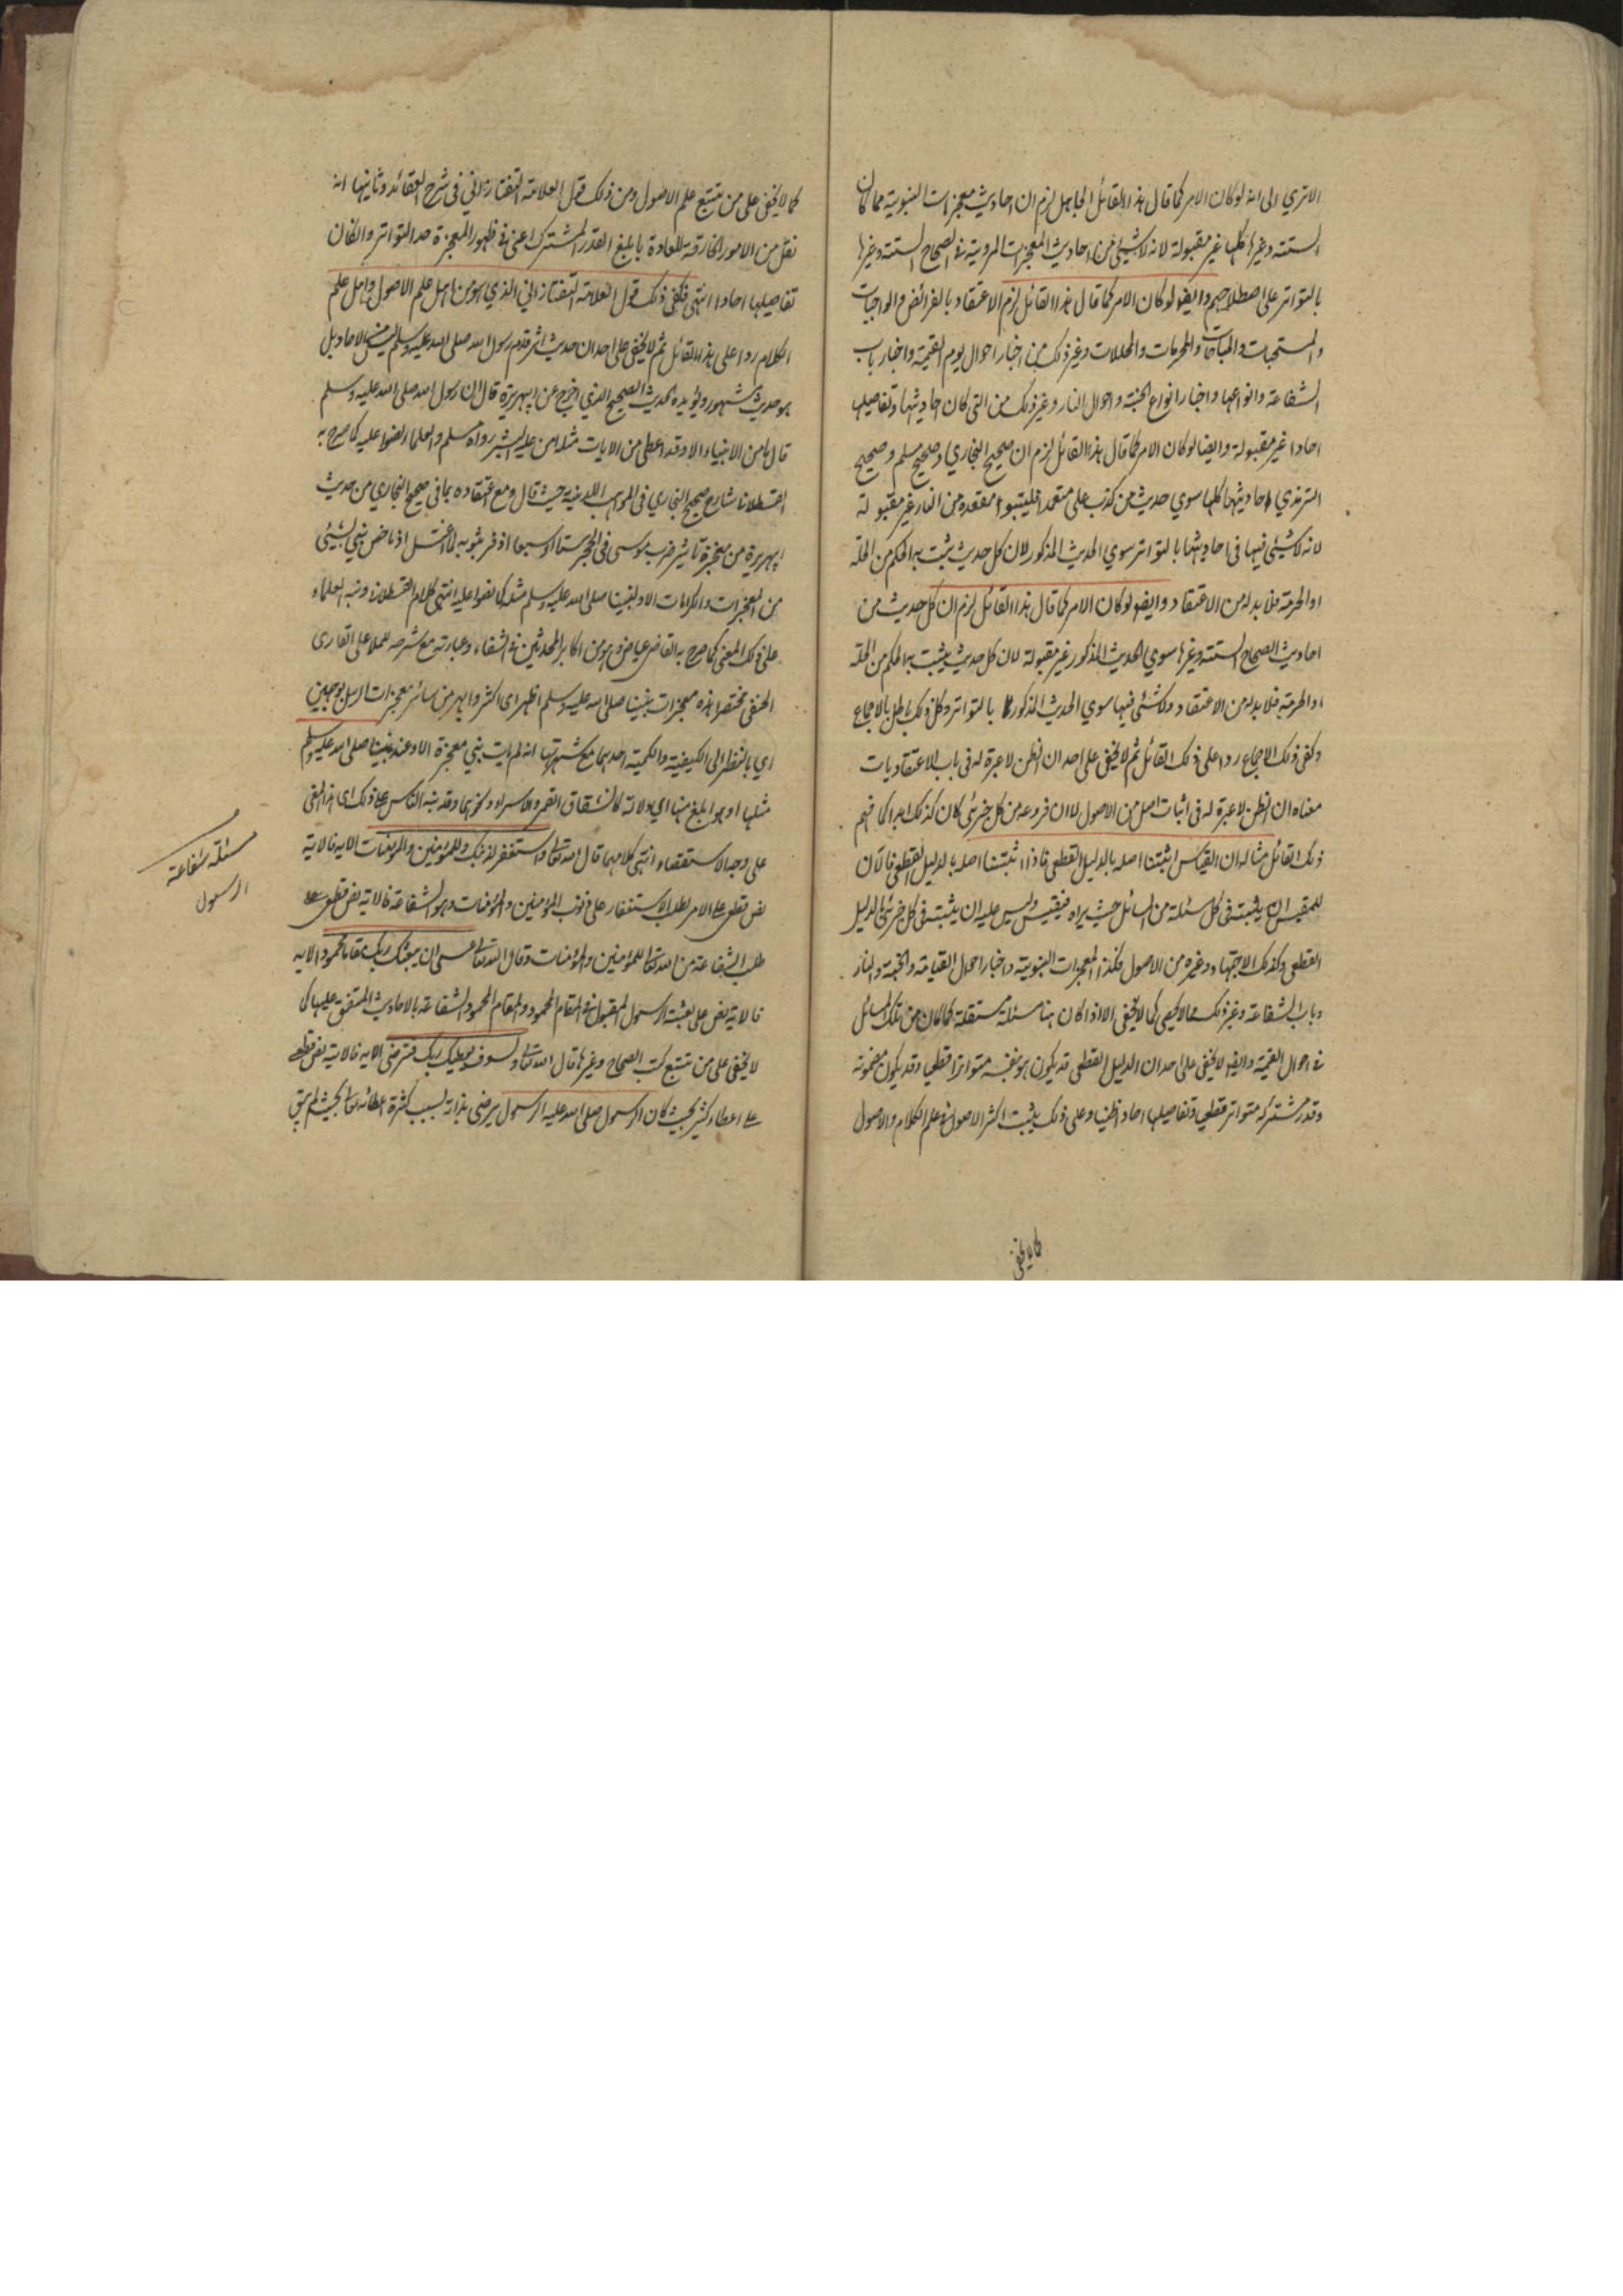 الا تري الى انه لو كان الامر كما قال هذا القائل الجاهل لزم ان احاديث معجزات النبوية مما كان
الستة وغيرها كلها غير مقبولة لانه لا شيئ من احاديث المعجزات المروية في الصحاح الستة وغيرها
بالتواتر على اصطلاحهم وايضا لو كان الامر كما قال هذا القائل لزم الاعتقاد بالفرائض والواجبات
والمستحبات والمباحات والمحرمات والمحللات وغير ذلك من اخبار احوال يوم القيمة واخبار باب
الشفاعة وانواعها واخبار انواع الجنة واحوال النار وغير ذلك من التي كان احاديثها وتفاصيلها
احادا غير مقبولة وايضا لو كان الامر كما قال هذا القائل لزم ان صحيح البخاري وصحيح مسلم وصحيح
الترمذي احاديثها كلها سوي حديث من كذب على متعمدا فليتبوا مقعده من النار غير مقبولة
لانه لا شيئ فيها في احاديثها بالتواتر سوي الحديث المذكور لان كل حديث يثبت به الحكم من الحلة
او الحرمة فلا بد له من الاعتقاد وايضا لو كان الامر كما قال هذا القائل لزم ان كل حديث من
احاديث الصحاح الستة وغيرها سوي الحديث المذكور غير مقبولة لان كل حديث يثبت به الحكم من الحلة
او الحرمة فلا بد له من الاعتقاد ولا شئ فيها سوي الحديث المذكور بالتواتر وكل ذلك باطل بالاجماع
وكفى ذلك الاجماع ردا على ذلك القائل ثم لا يخفى على احد ان الظن لا عبرة له في باب الاعتقاديات
معناه ان الظن لا عبرة له في اثبات اصل من الاصول لا ان فروعه من كل جزئي كان كذلك ابدا كما فهم
ذلك القائل مثاله ان القياس اثبتنا اصله بالدليل القطعي فاذا اثبتنا اصله بالدليل القطعي فالآن
للمقيس ان يثبته في كل مسئلة من المسائل حيث يراه فيقيس وليس عليه ان يثبته في كل جزئي بالدليل
القطعي وكذلك الاجتهاد وغيره من الاصول فكذا المعجزات النبوية واخبار احوال القيامة والجنة والنار
وباب الشفاعة وغير ذلك مما لا يحصى كما لا يخفى الا اذا كان هنا مسئلة مستقلة كما كان من تلك المسائل
في احوال القيمة وايضا لا يخفى على احد ان الدليل القطعي قد يكون هو بنفسه متواترا قطعيا وقد يكون مضمونه
وقدر مشتركه متواتر قطعي وتفاصيلها احاد ظنيا وعلى ذلك يثبت اكثر الاصول في علم الكلام والاصول
كما لا يخفى
كما لا يخفى على من يتتبع علم الاصول ومن ذلك قول العلامة التفتازاني في شرح العقائد وثانيها انه
نقل من الامور الخارقة للعادة ما بلغ القدر المشترك اعني في ظهور المعجزة حد التواتر وان كان
تفاصيلها احادا انتهى فكفى ذلك قول العلامة التفتازاني الذي هو من اهل علم الاصول واهل علم
الكلام ردا على هذا القائل ثم لا يخفى على احد ان حديث اثر قدم رسول الله صلى الله عليه وسلم ليس من الاحاد بل
هو حديث مشهور ويؤيده الحديث الصحيح الذي اخرج عن ابي هريرة قال ان رسول الله صلى الله عليه وسلم
قال ما من الانبياء الا وقد اعطى من الايات مثله امن عليه البشر رواه مسلم والعلماء نصوا عليه كما صرح به
القسطلاني شارح صحيح البخاري في المواهب اللدنية حيث قال ومع اعتقاده بما في صحيح البخاري من حديث
ابي هريرة من معجزة تأثير ضرب موسى في الحجر ستا او سبعا اذ فر بثوبه لما اغتسل اذ ما خص نبي بشيئ
من المعجزات والكرامات الا ولنبينا صلى الله عليه وسلم مثله كما نصوا عليه انتهى كلام القسطلاني ونبه العلماء
على ذلك المعنى كما صرح به القاضي عياض وهو من اكابر المحدثين في الشفاء وعبارته مع شرحه لملا علي القاري
الحنفي مختصرا هذه معجزات نبينا صلى الله عليه وسلم اظهر اي اكثر وابهر من سائر معجزات الرسل بوجهين
اي بالنظر الى الكيفية والكمية احدهما مع كثرتها انه لم يأت نبي معجزة الا وعند نبينا صلى الله عليه وسلم
مثلها او هو ابلغ منها اي دلالة كانشقاق القمر والاسراء ونحوهما وقد نبه الناس على ذلك اي هذا المعنى
على وجه الاستقصاء انتهى كلامهما قال الله تعالى واستغفر لذنبك وللمؤمنين والمؤمنات الاية فالاية
نص قطعي على الامر بطلب الاستغفار على ذنوب المؤمنين والمؤمنات وهو الشفاعة فالاية نص قطعي على
طلب الشفاعة من الله تعالى للمؤمنين والمؤمنات وقال الله تعالى عسى ان يبعثك ربك مقاما محمودا الاية
فالاية نص على بعثة الرسول المقبول في المقام المحمود والمقام المحمود الشفاعة بالاحاديث المتفق عليها كما
لا يخفى على من تتبع كتب الصحاح وغيرها قال الله تعالى ولسوف يعطيك ربك فترضى الاية فالاية نص قطعي
على اعطاء كثير بحيث كان الرسول صلى الله عليه الرسول يرضى بذاته بسبب كثرة اعطائه تعالى بحيث لم يبق
مسئلة شفاعة
الرسول